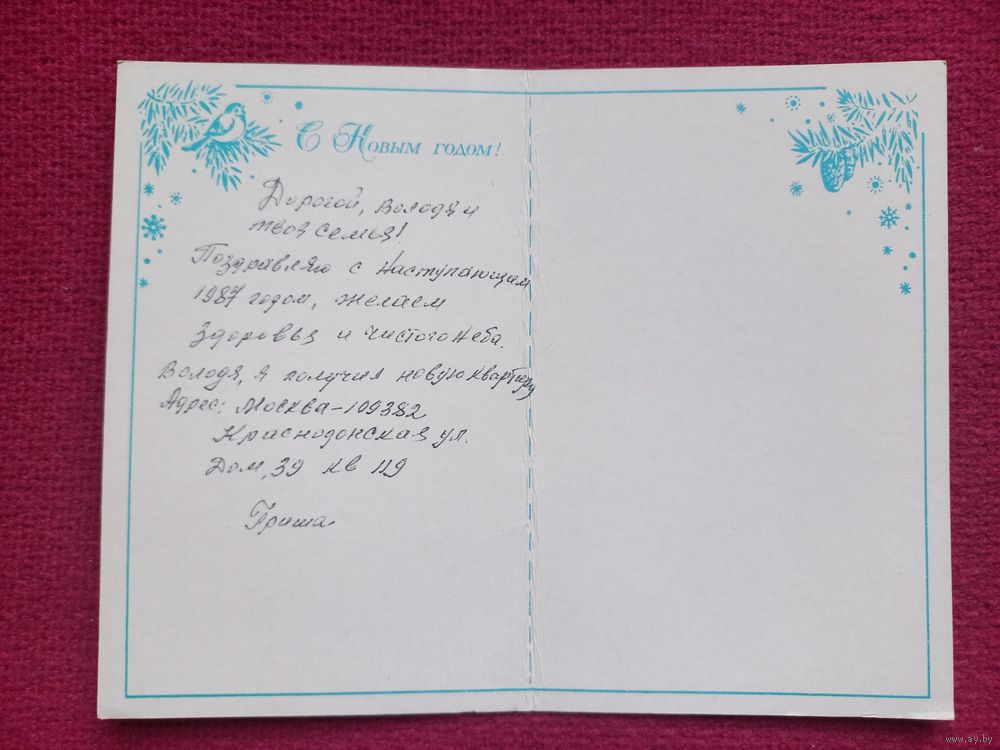 С Новым годом!
Дорогой, Володя и
твоя семья!
Поздравляю с наступающим
1987 годом, желаем
Здоровья и чистого неба.
Володя, я получил новую квартиру
Адрес: Москва-109382
Краснодонская ул.
Дом, 39 кв 119
Гриша.
www.ay.by